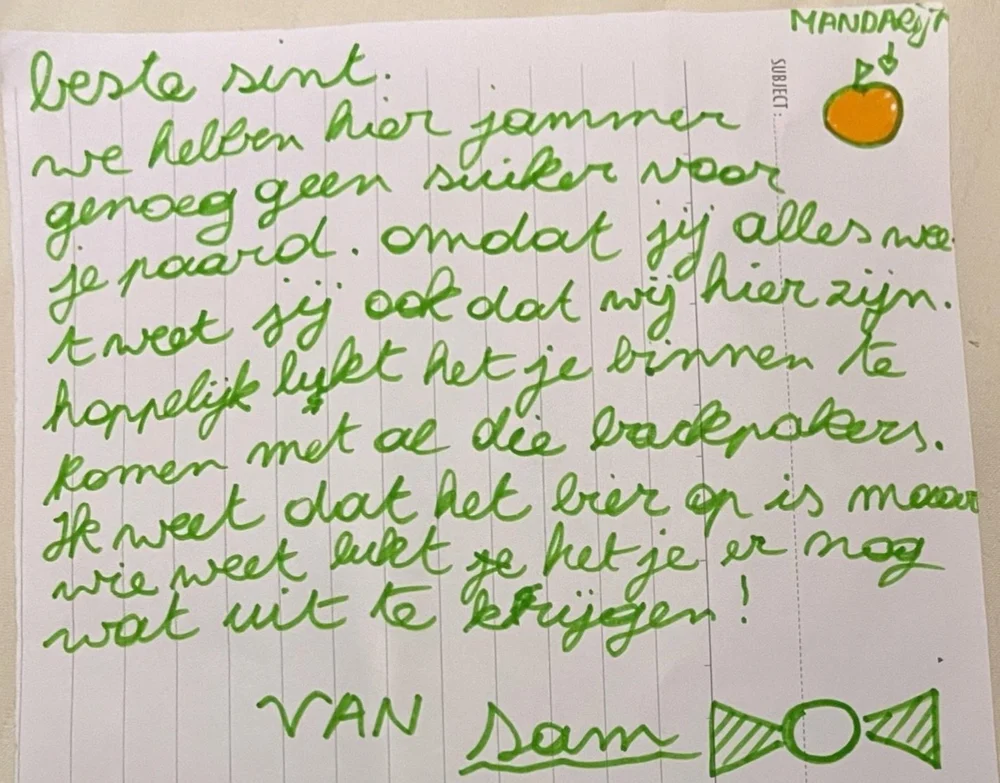 MANDARijN
SUBJECT:
beste sint.
we hebben hier jammer
genoeg geen suiker voor
je paard. omdat jij alles wee
t weet jij ook dat wij hier zijn.
hoppelijk lukt het je binnen te
komen met al die backpakers.
Ik weet dat het bier op is maar
wie weet lukt je het je er nog
wat uit te krijgen!
VAN sam